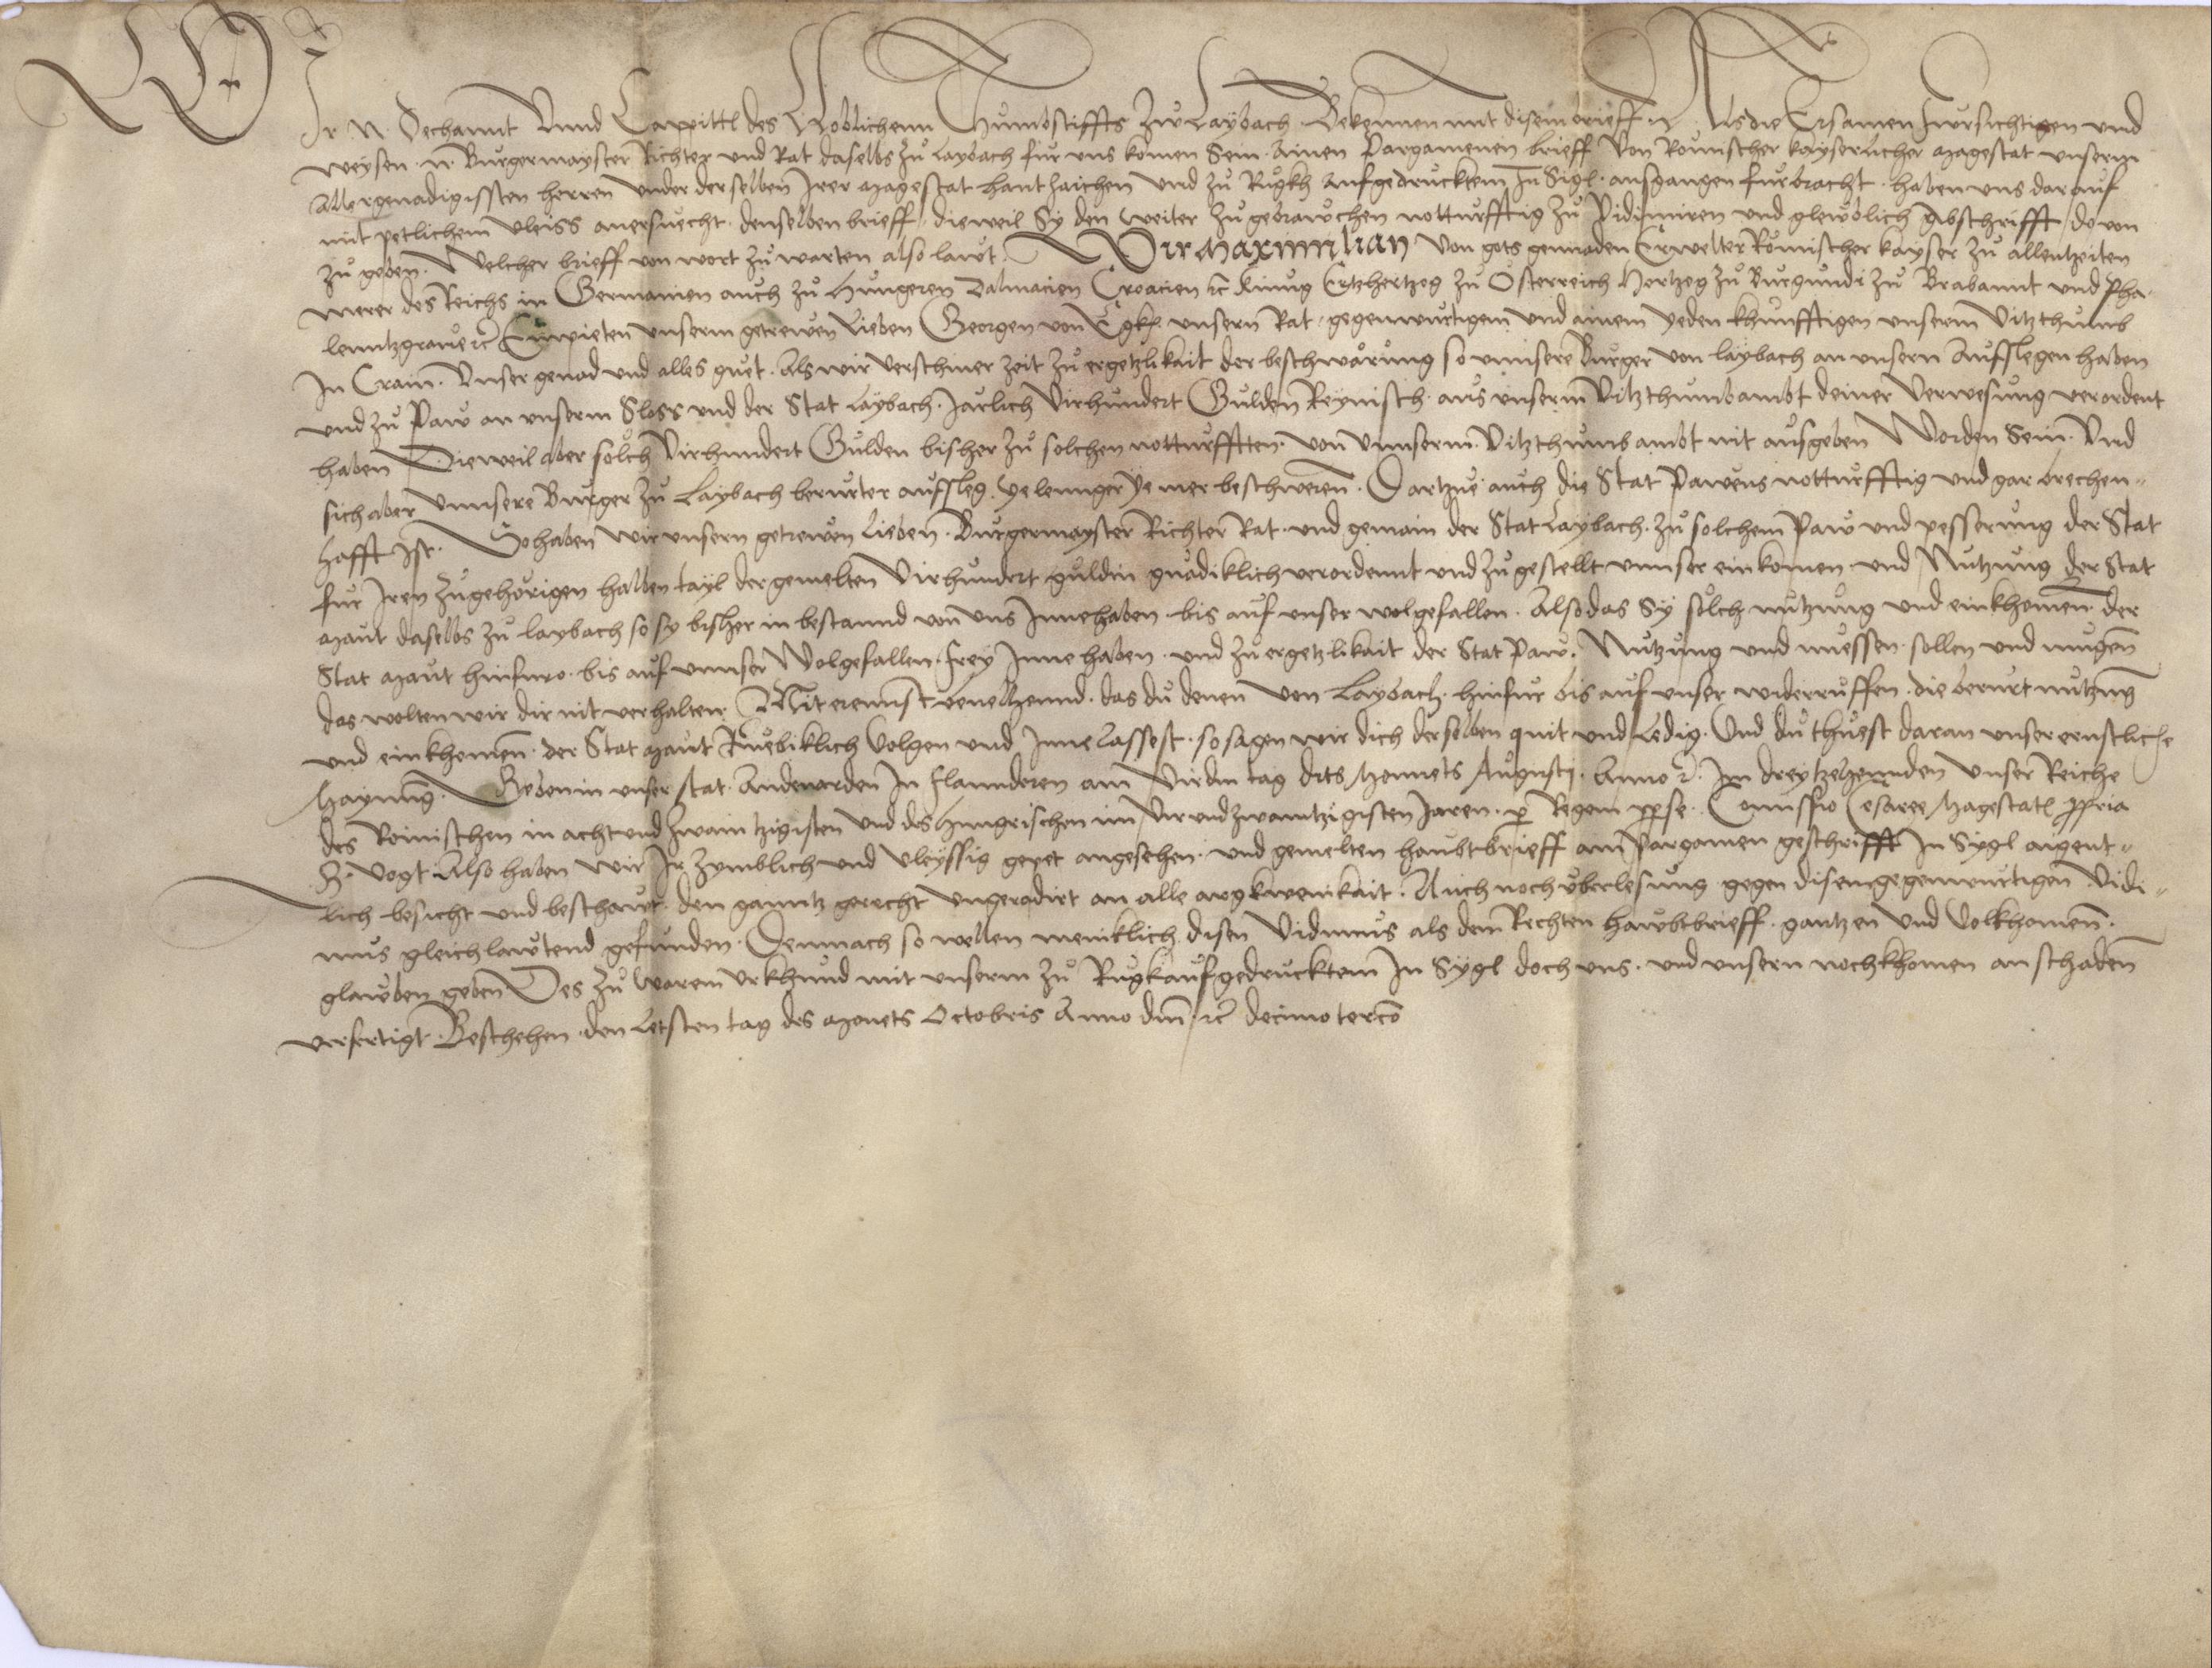 WIr N Dechannt Unnd Cappittl des Loblichenn Thumbstiffts Zw Laybach Bekennen mit disem brieff. Als die Ersamen fursichtigen und
weysen. N. Burgermayster Richter und Rat daselbs zu laybach fur uns komen Sein. Ainen Pargamenen brieff Von Romischer kayserlicher Magestat unserm
Allergenadigissten herren under derselben Irer Magestat hant zaichen und zu Rugkh Aufgedrucktem In Sigl. ausgangen furbracht. haben uns darauf
mit petlichem vleiss anersuecht. denselben brieff, dieweil Sy den weiter zu gebrawchen notturfftig zu Vidimiren und glewblich Abschrifft do von
zu geben. Welcher brieff von wort zu warten also lawt. Wir Maximilian Von gots gennaden Erwelter Romischer kayser zu allentzeiten
merer des Reichs in Germanien auch zu Hungeren Dalmacien Croacien etc Kunig Ertzhertzog zu Osterreich Hertzog zu Burgundi zu Brabannt und Pha-
lenntzgrave etc Empieten unserm getrewen Lieben Georgen von Egkh unserm Rat gegenwurtigem und ainem yeden khunfftigen unserm Vitzthumb
In Crain. Unser genad und alles guet. Als wir verschiner zeit zu ergetzlikait der beschwärung so unnsere Burger von laybach an unsern Aufslegen haben
und zu Paw an unserm Sloss und der Stat Laybach. Järlich Virhundert Gulden Reynisch aus unserm Vitzthumbambt deiner Verwesung verordent
haben Dieweil aber solch Virhundert Gulden bisher zu solchen notturfften. von Unnserm. Vitzthumbambt nit ausgeben Worden Sein. Und
sich aber Unnsere Burger zu Laybach berurter aufsleg. ye lennger ye mer beschweren. Dartzue auch die Stat Pawens notturfftig und gar brechen-
hafft Ist. So haben Wir unsern getrewen Lieben. Burgermayster Richter Rat. und gemain der Stat Laybach. zu solchem Paw und pesserung der Stat
fur Iren zugehorigen halben tayl der gemelten Virhundert guldin gnadiklich verordennt und zugestellt unnser einkomen und Nutzung der Stat
Maut daselbs zu laybach so sy bisher in bestannd von uns Innehaben bis auf unser wolgefallen. Also das Sy solch nutzung und einkhomen der
Stat Maut hinfuro. bis auf unnser Wolgefallen. frey Inne haben. und zu ergetzlikait der Stat Paw. Nutzung und nuessen. sollen und mugen
das wolten wir dir nit verhalten Mit ernnst bevelhennd. das du denen von Laybach. hinfur bis auf unser widerruffen. die berurt nutzung
und einkhomen. der Stat Maut Ruebiklich Volgen und Inne lassest. so sagen wir dich derselben quit und Ledig. Und du thuest daran unser ernstliche
Maynung. Geben in unser stat. Andenarden In Flannderen am Virdn tag dits Monnets Augusti. Anno etc. Im dreytzehennden Unser Reiche
des Romischen in acht und zwaintzigisten und des Hungrischen im Vir und zwanntzigisten Jaren. p Regem pp se. Comissio Cesaree Magestatis ppria
B. Vogt. Also haben wir Ir zymblich und vleyssig gepet angesehen. und gemelten haubtbrieff am Pargamen geschrifft In Sygl aigent-
lich besicht und beschawt. den ganntz gerecht ungeradirt an alle argkwenikait. Auch noch uberlesung gegen disem gegenwurtigen Vidi-
mus gleichlawtend gefunden. Demnach so wellen meniklich disen Vidimus als dem Rechten hawbtbrieff. gantzen und Volkhomen.
glawben geben Des zu Warem Urkhund mit unserm zu Rugkaufgedrucktem In Sygl doch uns. und unsern nochkhomen an schaden
verfertigt. Beschehen. den Letsten tag des Monets Octobris Anno dm etc decimo tercio